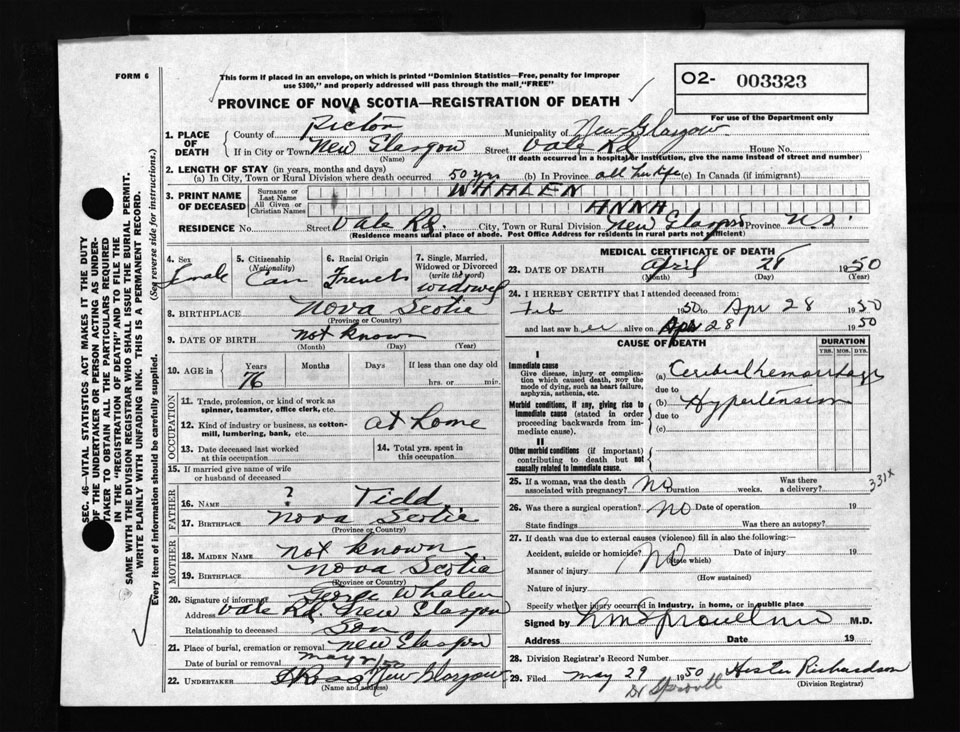 FORM 6
This form if placed in an envelope, on which is printed "Dominion Statistics—Free, penalty for improper
use $300," and properly addressed will pass through the mail "FREE"
O2- 003323
PROVINCE OF NOVA SCOTIA—REGISTRATION OF DEATH
For use of the Department only
1. PLACE OF DEATH
County of Pictou Municipality of New Glasgow
If in City or Town New Glasgow Street Vale Rd House No.
(Name) (If death occurred in a hospital or institution, give the name instead of street and number)
2. LENGTH OF STAY (in years, months and days)
(a) In City, Town or Rural Division where death occurred 50 yrs (b) In Province all her life (c) In Canada (if immigrant)
3. PRINT NAME OF DECEASED
Surname or Last Name WHALEN
All Given or Christian Names ANNA
RESIDENCE No. Street Vale Rd. City, Town or Rural Division New Glasgow Province N.S.
(Residence means usual place of abode. Post Office Address for residents in rural parts not sufficient)
4. Sex
Female
5. Citizenship (Nationality)
Can
6. Racial Origin
French
7. Single, Married, Widowed or Divorced (write the word)
widowed
8. BIRTHPLACE Nova Scotia
(Province or Country)
9. DATE OF BIRTH not known
(Month) (Day) (Year)
10. AGE in Years Months Days If less than one day old
76 hrs. or min.
OCCUPATION
11. Trade, profession, or kind of work as
spinner, teamster, office clerk, etc.
12. Kind of industry or business, as cotton-
mill, lumbering, bank, etc. at home
13. Date deceased last worked
at this occupation
14. Total yrs. spent in
this occupation
15. If married give name of wife
or husband of deceased
FATHER
16. NAME ? Tidd
17. BIRTHPLACE Nova Scotia
(Province or Country)
MOTHER
18. MAIDEN NAME not known
19. BIRTHPLACE Nova Scotia
(Province or Country)
20. Signature of informant George Whalen
Address Vale Rd New Glasgow
Relationship to deceased Son
21. Place of burial, cremation or removal New Glasgow
Date of burial or removal May 1/50
22. UNDERTAKER Ross New Glasgow
(Name and address)
MEDICAL CERTIFICATE OF DEATH
23. DATE OF DEATH April 28 1950
(Month) (Day) (Year)
24. I HEREBY CERTIFY that I attended deceased from:
Feb 1950 to Apr 28 1950
and last saw her alive on Apr 28 1950
CAUSE OF DEATH
DURATION
YRS. MOS. DYS.
I
Immediate cause
Give disease, injury or compli-
cation which caused death, NOT the
mode of dying, such as heart failure,
asphyxia, asthenia, etc.
(a) Cerebral hemorrhage
due to
Morbid conditions, if any, giving rise to
immediate cause (stated in order
proceeding backwards from im-
mediate cause).
(b) Hypertension
due to
(c)
II
Other morbid conditions (if important)
contributing to death but not
causally related to immediate cause.
331X
25. If a woman, was the death
associated with pregnancy? No Duration weeks. Was there
a delivery?
26. Was there a surgical operation? No Date of operation 19
State findings Was there an autopsy?
27. If death was due to external causes (violence) fill in also the following:—
Accident, suicide or homicide? No (State which) Date of injury 19
Manner of injury
(How sustained)
Nature of injury
Specify whether injury occurred in industry, in home, or in public place
Signed by M.D.
Address Date 19
28. Division Registrar's Record Number
29. Filed May 29 1950 Hester Richardson
(Division Registrar)
Dr Sproull
SEC. 46—VITAL STATISTICS ACT MAKES IT THE DUTY
OF THE UNDERTAKER OR PERSON ACTING AS UNDER-
TAKER TO OBTAIN ALL THE PARTICULARS REQUIRED
IN THE "REGISTRATION OF DEATH" AND TO FILE THE
SAME WITH THE DIVISION REGISTRAR WHO SHALL ISSUE THE BURIAL PERMIT.
WRITE PLAINLY WITH UNFADING INK. THIS IS A PERMANENT RECORD.
Every item of information should be carefully supplied. (See reverse side for instructions.)